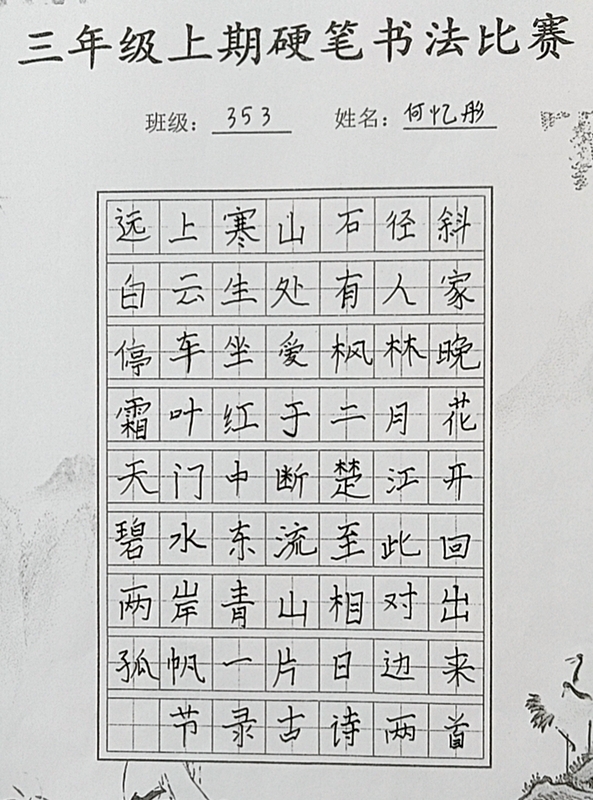 三年级上期硬笔书法比赛
班级：353 姓名：何忆彤
远上寒山石径斜
白云生处有人家
停车坐爱枫林晚
霜叶红于二月花
天门中断楚江开
碧水东流至此回
两岸青山相对出
孤帆一片日边来
节录古诗两首